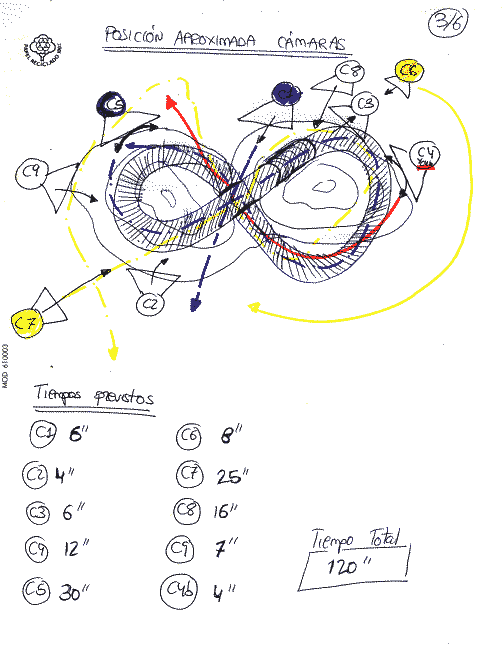 3/6
POSICIÓN APROXIMADA CÁMARAS
PAPEL RECICLADO
C8
C6
C5
C3
C4
C9
C2
C7
MOD 610003
Tiempos previstos
C1 6"
C2 4"
C3 6"
C4 12"
C5 30"
C6 8"
C7 25"
C8 16"
C9 7"
C4b 4"
Tiempo Total
120"